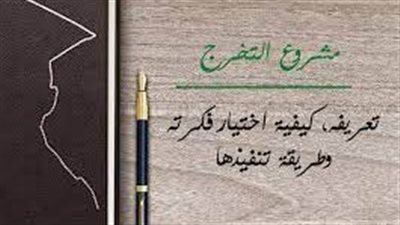 مشروع التخرج
تعريفه، كيفية اختيار فكرته
وطريقة تنفيذها